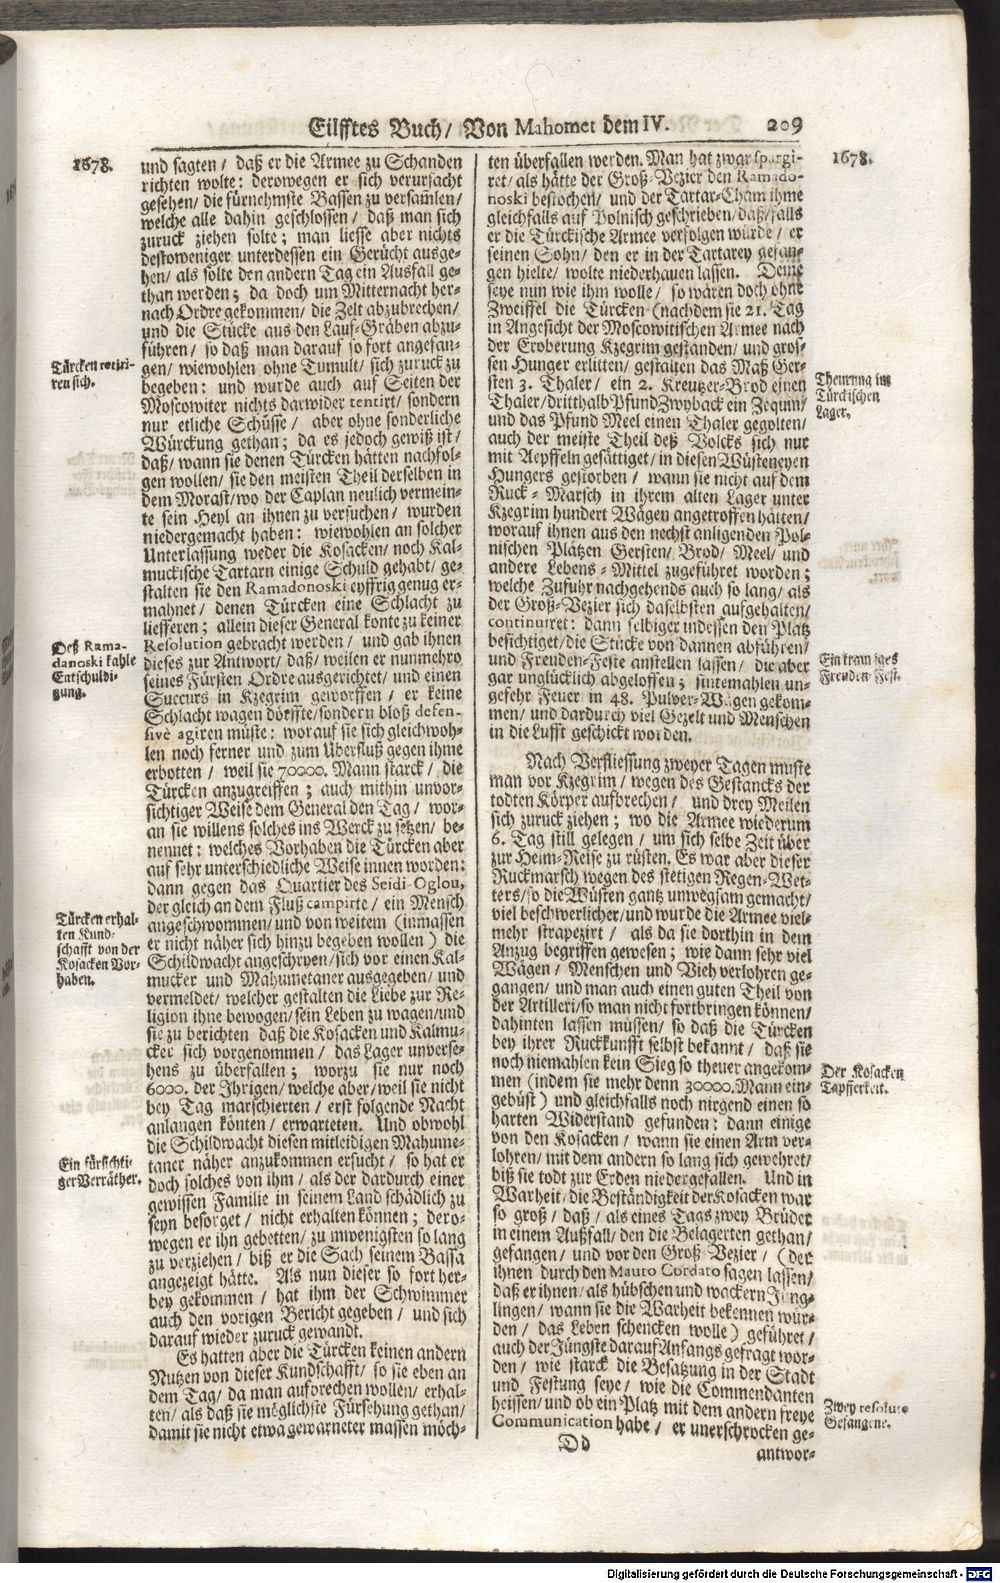 Eilfftes Buch/ Von Mahomet dem IV. 209
1678.
und sagten/ daß er die Armee zu Schanden
richten wolte: derowegen er sich verursacht
gesehen/ die fürnehmste Bassen zu versam̃len/
welche alle dahin geschlossen/ daß man sich
zuruck ziehen solte; man liesse aber nichts
destoweniger unterdessen ein Gerücht ausge-
hen/ als solte den andern Tag ein Ausfall ge-
than werden; da doch um Mitternacht her-
nach Ordre gekommen/ die Zelt abzubrechen/
und die Stücke aus den Lauf-Gräben abzu-
führen/ so daß man darauf so fort angefan-
gen/ wiewohlen ohne Tumult/ sich zuruck zu
begeben: und wurde auch auf Seiten der
Moscowiter nichts darwider tentirt/ sondern
nur etliche Schüsse/ aber ohne sonderliche
Würckung gethan; da es jedoch gewiß ist/
daß/ wann sie denen Türcken hätten nachfol-
gen wollen/ sie den meisten Theil derselben in
dem Morast/ wo der Caplan neulich vermein-
te sein Heyl an ihnen zu versuchen/ wurden
niedergemacht haben: wiewohlen an solcher
Unterlassung weder die Kosacken/ noch Kal-
muckische Tartarn einige Schuld gehabt/ ge-
stalten sie den Ramadonoski eyffrig genug er-
mahnet/ denen Türcken eine Schlacht zu
liefferen; allein dieser General konte zu keiner
Resolution gebracht werden/ und gab ihnen
dieses zur Antwort/ daß/ weilen er nunmehro
seines Fürsten Ordre ausgerichtet/ und einen
Succurs in Kzegrim geworffen/ er keine
Schlacht wagen dörffte/ sondern bloß defen-
sivè agiren müste: worauf sie sich gleichwoh-
len noch ferner und zum Überfluß gegen ihme
erbotten/ weil sie 70000. Mann starck/ die
Türcken anzugreiffen; auch mithin unvor-
sichtiger Weise dem General den Tag/ wor-
an sie willens solches ins Werck zu setzen/ be-
nennet: welches Vorhaben die Türcken aber
auf sehr unterschiedliche Weise innen worden:
dann gegen das Quartier des Seidi-Oglou,
der gleich an dem Fluß campirte/ ein Mensch
angeschwommen/ und von weitem (inmassen
er nicht näher sich hinzu begeben wollen) die
Schildwacht angeschryen/ sich vor einen Kal-
mucker und Mahumetaner ausgegeben/ und
vermeldet/ welcher gestalten die Liebe zur Re-
ligion ihne bewogen/ sein Leben zu wagen/ und
sie zu berichten daß die Kosacken und Kalmu-
cker sich vorgenommen/ das Lager unverse-
hens zu überfallen; worzu sie nur noch
6000. der Ihrigen/ welche aber/ weil sie nicht
bey Tag marschierten/ erst folgende Nacht
anlangen könten/ erwarteten. Und obwohl
die Schildwacht diesen mitleidigen Mahume-
taner näher anzukommen ersucht/ so hat er
doch solches von ihm/ als der dardurch einer
gewissen Familie in seinem Land schädlich zu
seyn besorget/ nicht erhalten können; dero-
wegen er ihn gebetten/ zu mwenigsten so lang
zu verziehen/ biß er die Sach seinem Bassa
angezeigt hätte. Als nun dieser so fort her-
bey gekommen/ hat ihm der Schwimmer
auch den vorigen Bericht gegeben/ und sich
darauf wieder zuruck gewandt.
Es hatten aber die Türcken keinen andern
Nutzen von dieser Kundschafft/ so sie eben an
dem Tag/ da man aufbrechen wollen/ erhal-
ten/ als daß sie möglichste Fürsehung gethan/
damit sie nicht etwa gewarneter massen möch-
Türcken retiri-
ren sich.
Deß Rama-
danoski kahle
Entschuldi-
gung.
Türcken erhal-
ten Kund-
schafft von der
Kosacken Vor-
haben.
Ein fürsichti-
ger Verräther.
1678.
ten überfallen werden. Man hat zwar spargi-
ret/ als hätte der Groß-Vezier den Ramado-
noski bestochen/ und der Tartar-Cham ihme
gleichfalls auf Polnisch geschrieben/ daß/ falls
er die Türckische Armee verfolgen würde/ er
seinen Sohn/ den er in der Tartarey gefan-
gen hielte/ wolte niederhauen lassen. Deme
seye nun wie ihm wolle/ so wären doch ohne
Zweiffel die Türcken (nachdem sie 21. Tag
in Angesicht der Moscowitischen Armee nach
der Eroberung Kzegrim gestanden/ und gros-
sen Hunger erlitten/ gestalten das Maß Ger-
sten 3. Thaler/ ein 2. Kreutzer-Brod einen
Thaler/ dritthalb Pfund Zwyback ein Zequin/
und das Pfund Meel einen Thaler gegolten/
auch der meiste Theil deß Volcks sich nur
mit Aepffeln gesättiget/ in diesen Wüsteneyen
Hungers gestorben/ wann sie nicht auf dem
Ruck-Marsch in ihrem alten Lager unter
Kzegrim hundert Wägen angetroffen hätten/
worauf ihnen aus den nechst anligenden Pol-
nischen Plätzen Gersten/ Brod/ Meel/ und
andere Lebens-Mittel zugeführet worden;
welche Zufuhr nachgehends auch so lang/ als
der Groß-Vezier sich daselbsten aufgehalten/
continuiret: dann selbiger indessen den Platz
besichtiget/ die Stücke von dannen abführen/
und Freuden-Feste anstellen lassen/ die aber
gar unglücklich abgeloffen; sintemahlen un-
gefehr Feuer in 48. Pulver-Wägen gekom-
men/ und dardurch viel Gezelt und Menschen
in die Lufft geschickt worden.
Nach Verfliessung zweyer Tagen muste
man vor Kzegrim/ wegen des Gestancks der
todten Körper aufbrechen/ und drey Meilen
sich zuruck ziehen; wo die Armee wiederum
6. Tag still gelegen/ um sich selbe Zeit über
zur Heim-Reise zu rüsten. Es war aber dieser
Ruckmarsch wegen des stetigen Regen-Wet-
ters/ so die Wüsten gantz unwegsam gemacht/
viel beschwerlicher/ und wurde die Armee viel-
mehr strapezirt/ als da sie dorthin in dem
Anzug begriffen gewesen; wie dann sehr viel
Wägen/ Menschen und Vieh verlohren ge-
gangen/ und man auch einen guten Theil von
der Artilleri/ so man nicht fortbringen können/
dahinten lassen müssen/ so daß die Türcken
bey ihrer Ruckkunfft selbst bekannt/ daß sie
noch niemahlen kein Sieg so theuer angekom-
men (indem sie mehr denn 30000. Mann ein-
gebüst) und gleichfalls noch nirgend einen so
harten Widerstand gefunden: dann einige
von den Kosacken/ wann sie einen Arm ver-
lohren/ mit dem andern so lang sich gewehret/
biß sie todt zur Erden niedergefallen. Und in
Warheit/ die Beständigkeit der Kosacken war
so groß/ daß/ als eines Tags zwey Brüder
in einem Außfall/ den die Belagerten gethan/
gefangen/ und vor den Groß-Vezier/ (der
ihnen durch den Mauro Cordato sagen lassen/
daß er ihnen/ als hübschen und wackern Jüng-
lingen/ wann sie die Warheit bekennen wür-
den/ das Leben schencken wolle) geführet/
auch der Jüngste darauf Anfangs gefragt wor-
den/ wie starck die Besatzung in der Stadt
und Festung seye/ wie die Commendanten
heissen/ und ob ein Platz mit dem andern freye
Communication habe/ er unerschrocken ge-
Theurung im
Türckischen
Lager.
Ein trauriges
Freuden-Fest.
Der Kosacken
Tapfferkeit.
Zwey resolute
Gefangene.
Dd
antwor-
Digitalisierung gefördert durch die Deutsche Forschungsgemeinschaft - DFG